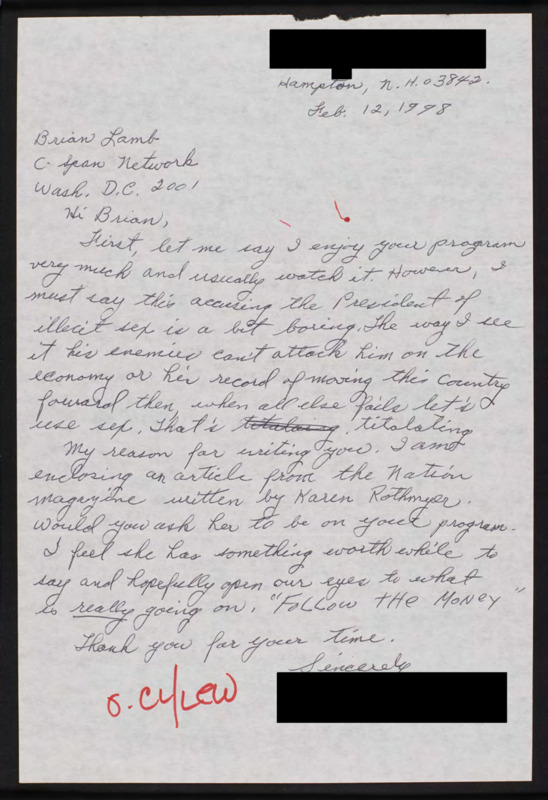 Hampton, N.H. 03842.
Feb. 12, 1998
Brian Lamb
C-Span Network
Wash. D.C. 2001
Hi Brian,
First, let me say I enjoy your program
very much and usually watch it. However, I
must say this accusing the President of
illicit sex is a bit boring. The way I see
it his enemies can't attack him on the
economy or his record of moving this country
foward then, when all else fails let's
use sex. That's titalating
My reason for writing you. I am
enclosing an article from the Nation
magazine written by Karen Rothmyer.
Would you ask her to be on your program.
I feel she has something worth while to
say and hopefully open our eyes to what
is really going on. "FOLLOW THE MONEY"
Thank you for your time.
Sincerely